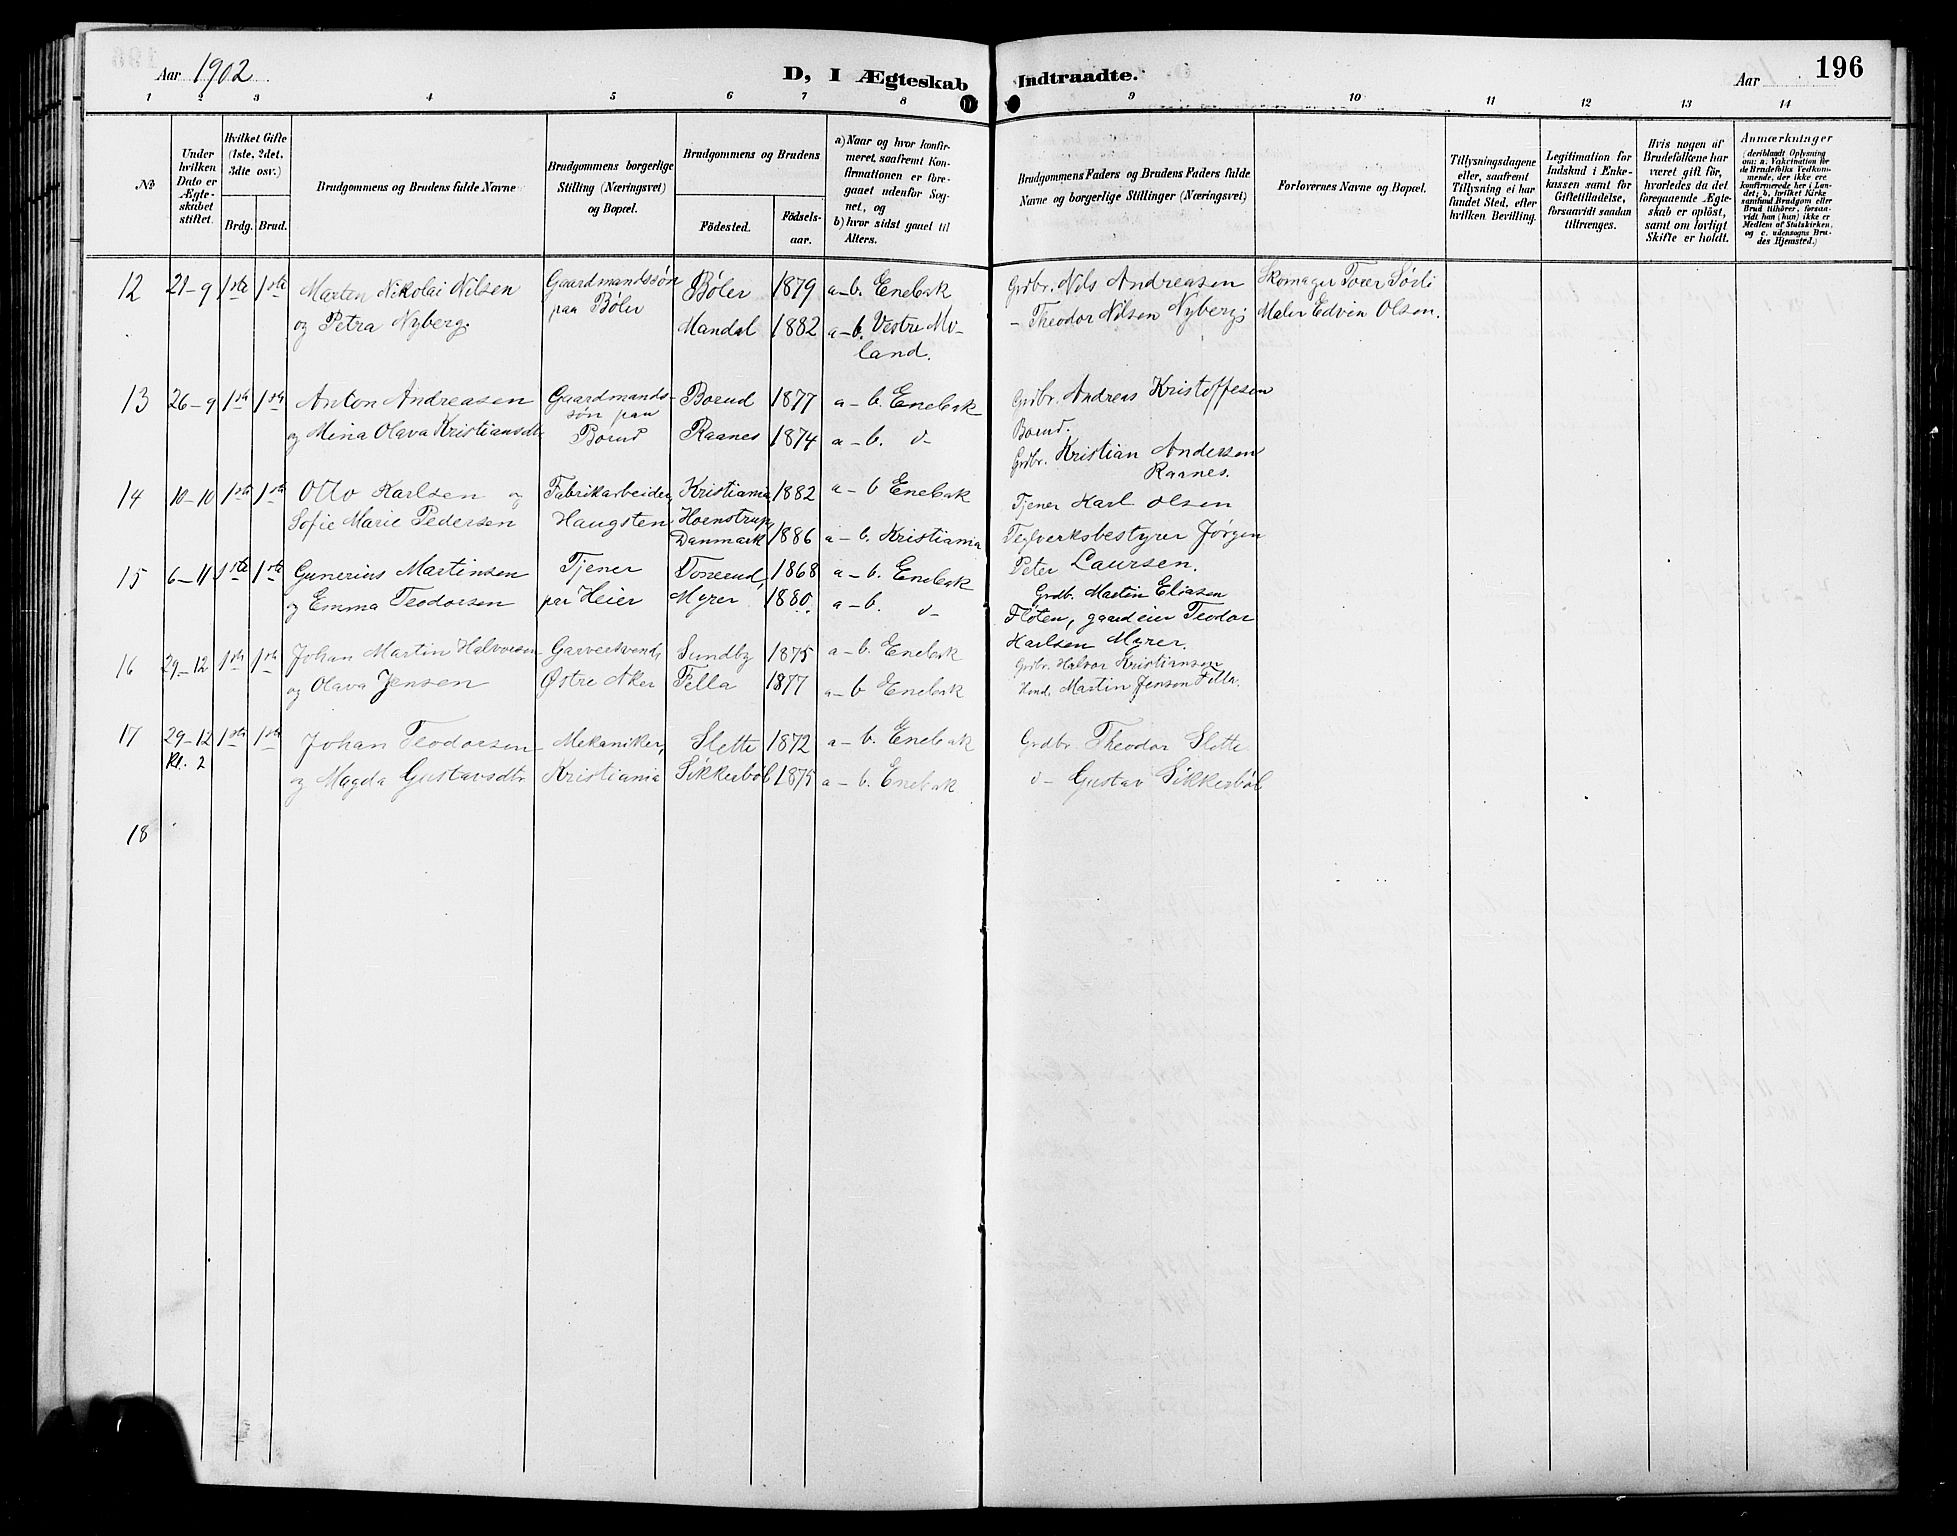 Aar 1902
D, I Ægteskab Indtraadte.
Aar
196
1 2 3 4 5 6 7 8 9 10 11 12 13 14
№
Under hvilken Dato er Ægteskabet stiftet.
Hvilket Gifte (1ste, 2det, 3die osv.)
Brdg. Brud.
Brudgommens og Brudens fulde Navne
Brudgommens borgerlige Stilling (Næringsvei) og Bopæl.
Brudgommens og Brudens
Fødested.
Fødselsaar.
a) Naar og hvor konfirmeret, saafremt Konfirmationen er foregaaet udenfor Sognet, og
b) hvor sidst gaaet til Alters.
Brudgommens Faders og Brudens Faders fulde Navne og borgerlige Stillinger (Næringsvei)
Forlovernes Navne og Bopæl.
Tillysningsdagene eller, saafremt Tillysning ei har fundet Sted, efter hvilken Bevilling.
Legitimation for Indskud i Enkekassen samt for Giftetilladelse, forsaavidt saadan tiltrænges.
Hvis nogen af Brudefolkene har været gift før, hvorledes da det foregaaende Ægteskab er opløst, samt om lovligt Skifte er holdt.
Anmærkninger
(deriblandt Oplysning om: a. Vakcination for de Brudefolks Vedkommende, der ikke ere konfirmerede her i Landet; b. hvilket Kirkesamfund Brudgom eller Brud tilhører, forsaavidt han (hun) ikke er Medlem af Statskirken, og c. udensogns Brudes Hjemsted.)
12 21-9 1ste 1ste Marten Nikolai Nilsen Gaardmandssøn Bøler 1879 a-b. Enebak Grdbr. Nils Andreasen Skomager Sørli
og Petra Nyberg. paa Bøler Mandal 1882 a-b. Vestre Mo- - Theodor Nilsen Nyberg; Maler Edvin Olsen.
land.
13 26-9 1ste 1ste Anton Andreasen Gaardmands- Borud 1877 a-b. Enebak Grdbr. Andreas Kristoffesen
søn paa
og Mina Olava Kristiansdtr. Borud Raanes 1874 a-b. d- Borud.
Grdbr. Kristian Andersen
Raanes.
14 10-10 1ste 1ste Otto Karlsen og Fabrikarbeider, Kristiania 1882 a-b Enebak Tjener Karl Olsen
Sofie Marie Pedersen Haugsten Hoenstrup
Danmark 1886 a-b. Kristiania Teglverksbestyrer Jørgen
Peter Laursen.
15 6-11 1ste 1ste Gunerius Martinsen Tjener Tonerud, 1868 a-b. Enebak Grdb. Martin Eliasen
og Emma Teodorsen paa Heier Myrer 1880. a-b. d- Fløten, gaardeier Teodor
Karlsen Myrer.
16 29-12 1ste 1ste Johan Martin Halvorsen Garversvend, Sundby 1875 a-b. Enebak Grdbr. Halvor Kristiansen
og Olava Jensen Østre Aker Tella 1877 a-b Enebak Hmd. Martin Jensen Tella.
17 29-12 1ste 1ste Johan Teodorsen Mekaniker, Slette 1872 a-b. Enebak Grdbr. Theodor Slette
Kl. 2 og Magda Gustavsdtr. Kristiania Sikkerbøl 1875 a-b. Enebak d- Gustav Sikkerbøl
18